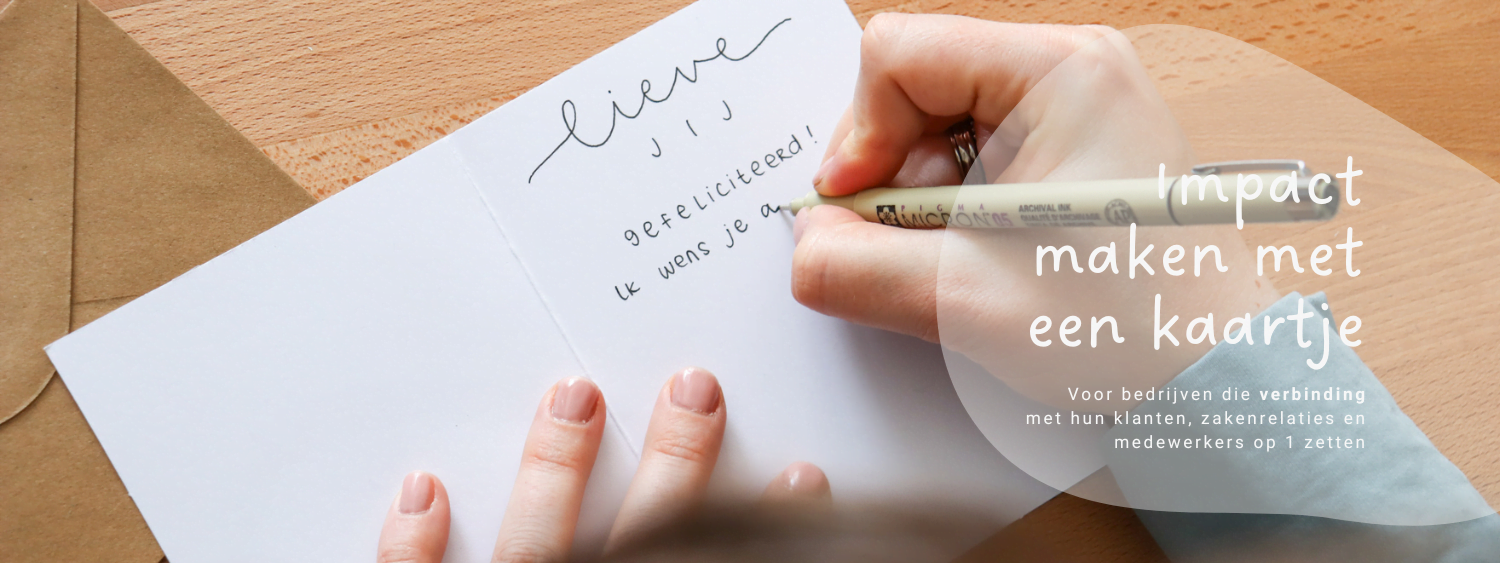 lieve
JIJ
gefeliciteerd!
Ik wens je a
PIGMA
MICRON 05
ARCHIVAL INK
QUALITÉ D'ARCHIVAGE
Impact
maken met
een kaartje
Voor bedrijven die verbinding
met hun klanten, zakenrelaties en
medewerkers op 1 zetten